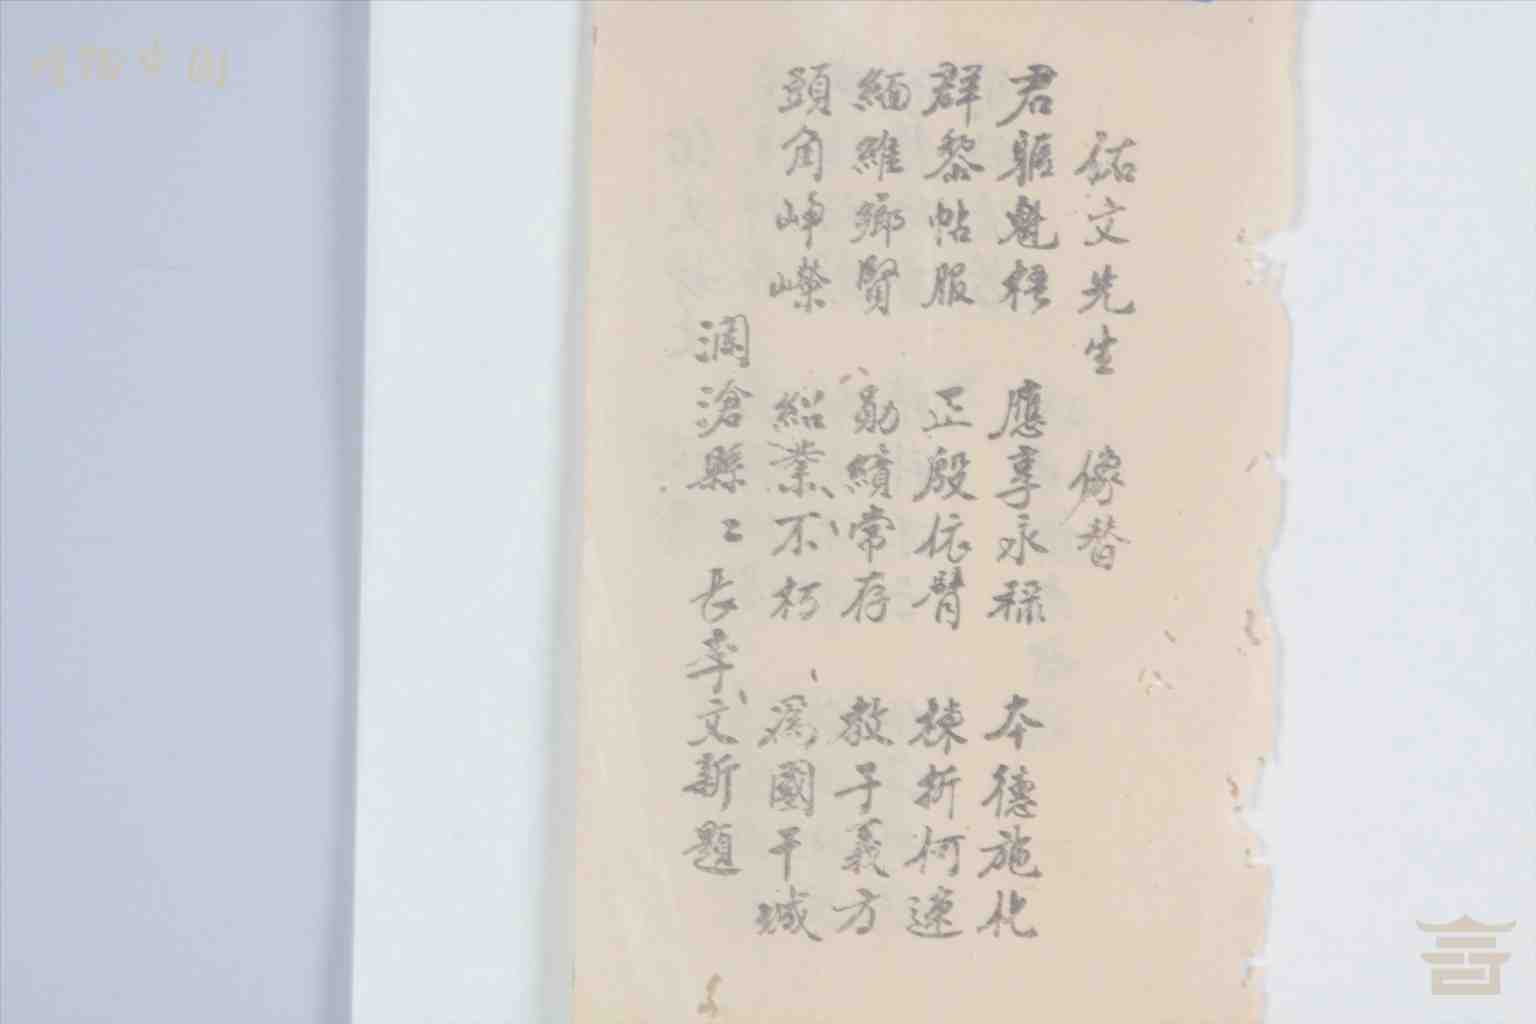 祐文先生 像替
君軀魁梧 應享永祿 本德施化
群黎帖服 正殷依臂 棟折何速
緬維鄉賢 勛績常存 教子義方
頭角崢嶸 紹業不朽 為國干城
瀾滄縣〻長李文新題